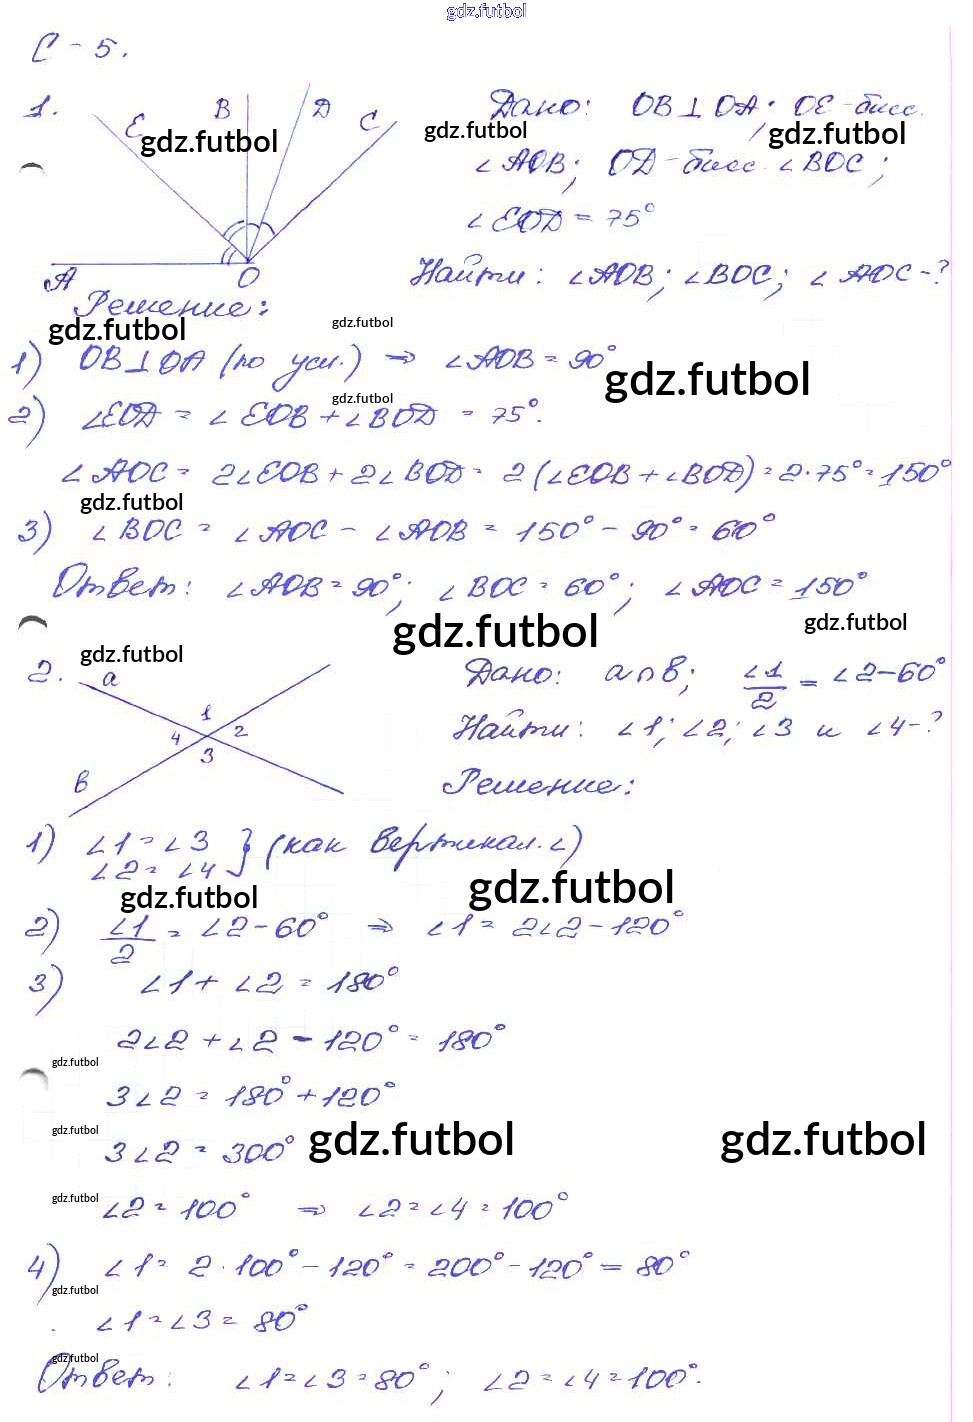 gdz.futbol
С-5.
1.
E B D C
gdz.futbol
A O
Дано: OB⊥OA; OE-бисс.
gdz.futbol gdz.futbol
∠AOB; OD-бисс. ∠BOC;
∠EOD = 75°
Найти: ∠AOB; ∠BOC; ∠AOC-?
Решение:
gdz.futbol gdz.futbol
1) OB⊥OA (по усл.) ⇒ ∠AOB = 90°
gdz.futbol
gdz.futbol
2) ∠EOD = ∠EOB + ∠BOD = 75°.
∠AOC = 2∠EOB + 2∠BOD = 2(∠EOB + ∠BOD) = 2·75° = 150°
gdz.futbol
3) ∠BOC = ∠AOC - ∠AOB = 150° - 90° = 60°
Ответ: ∠AOB = 90°; ∠BOC = 60°; ∠AOC = 150°
gdz.futbol gdz.futbol
gdz.futbol
2.
a
1
4 2
3
b
Дано: a∩b; ∠1/2 = ∠2-60°
Найти: ∠1; ∠2; ∠3 и ∠4-?
Решение:
1) ∠1 = ∠3
∠2 = ∠4 } (как вертикал. ∠)
gdz.futbol gdz.futbol
2) ∠1/2 = ∠2-60° ⇒ ∠1 = 2∠2-120°
3) ∠1 + ∠2 = 180°
2∠2 + ∠2 - 120° = 180°
gdz.futbol
3∠2 = 180° + 120°
gdz.futbol gdz.futbol gdz.futbol
3∠2 = 300°
gdz.futbol
∠2 = 100° ⇒ ∠2 = ∠4 = 100°
4) ∠1 = 2·100° - 120° = 200° - 120° = 80°
gdz.futbol
∠1 = ∠3 = 80°
gdz.futbol
Ответ: ∠1 = ∠3 = 80°; ∠2 = ∠4 = 100°.